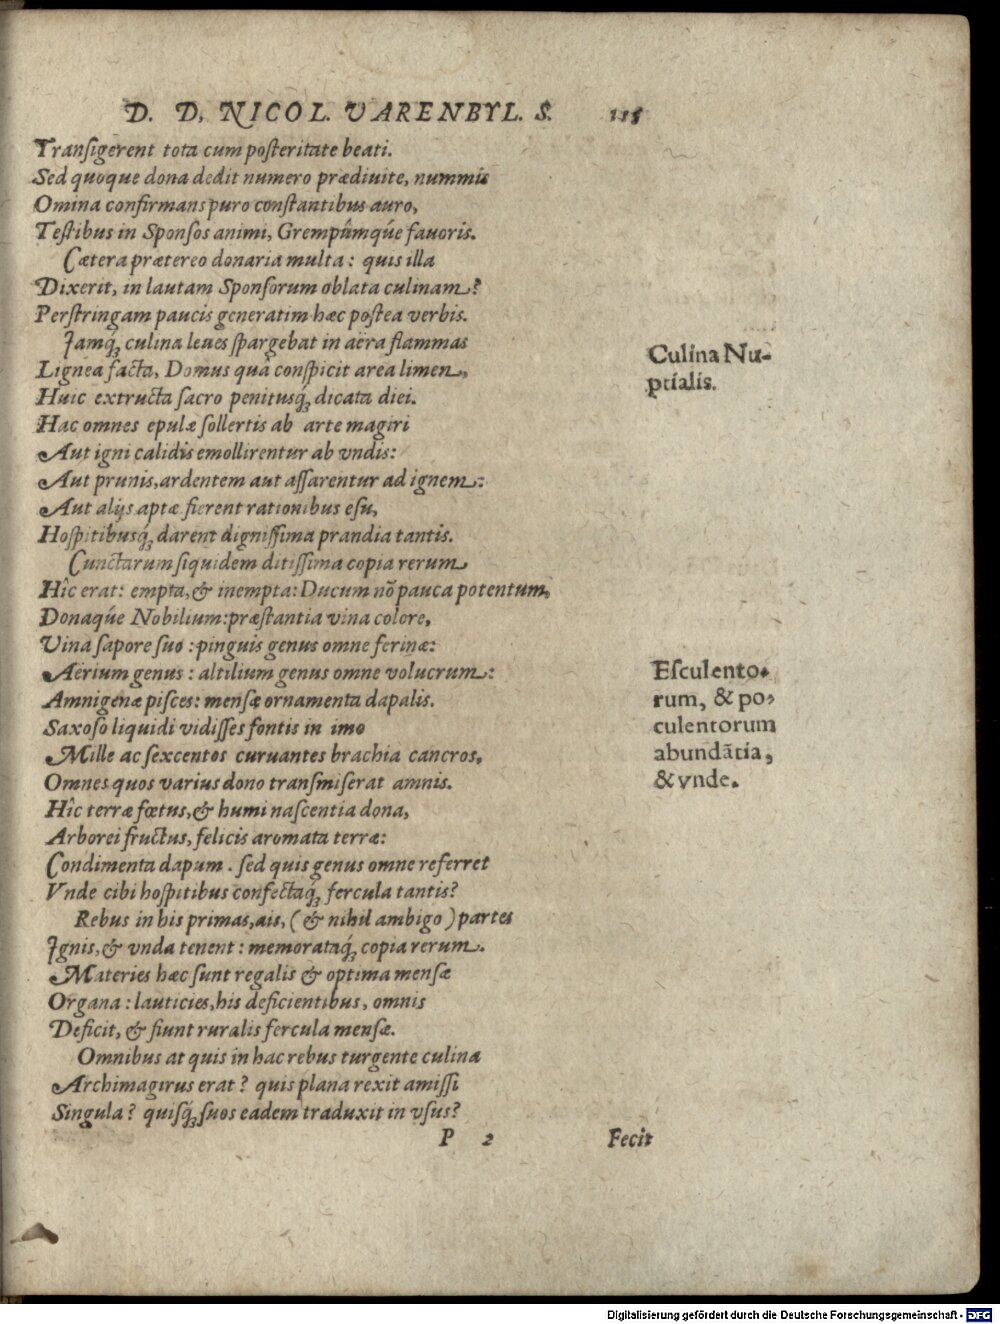 D. D. NICOL. VARENBYL. S. 115
Tranſigerent tota cum poſteritate beati.
Sed quoque dona dedit numero prædiuite, nummis
Omina confirmans puro conſtantibus auro,
Teſtibus in Sponſos animi, Grempûmq́ue fauoris.
Cætera prætereo donaria multa: quis illa
Dixerit, in lautam Sponſorum oblata culinam?
Perſtringam paucis generatim hæc poſtea verbis.
Jamq́ꝫ culina leues ſpargebat in aëra flammas
Culina Nu-
ptialis.
Lignea facta, Domus quâ conſpicit area limen,
Huic extructa ſacro penitusq́ꝫ dicata diei.
Hac omnes epulæ ſollertis ab arte magiri
Aut igni calidis emollirentur ab vndis:
Aut prunis, ardentem aut aſſarentur ad ignem:
Aut alijs aptæ fierent rationibus eſu,
Hoſpitibusq́ꝫ darent digniſſima prandia tantis.
Cunctarum ſiquidem ditiſſima copia rerum
Hîc erat: empta, & inempta: Ducum nō pauca potentum,
Donaq́ue Nobilium: præſtantia vina colore,
Vina ſapore ſuo: pinguis genus omne ferinæ:
Aërium genus: altilium genus omne volucrum:
Amnigenæ piſces: menſæ ornamenta dapalis.
Eſculento-
rum, & po-
culentorum
abundãtia,
& vnde.
Saxoſo liquidi vidiſſes fontis in imo
Mille ac ſexcentos curuantes brachia cancros,
Omnes quos varius dono tranſmiſerat amnis.
Hîc terræ fœtus, & humi naſcentia dona,
Arborei fructus, felicis aromata terræ:
Condimenta dapum. ſed quis genus omne referret
Vnde cibi hoſpitibus confectaq́ꝫ fercula tantis?
Rebus in his primas, ais, (& nihil ambigo) partes
Ignis, & vnda tenent: memorataq́ꝫ copia rerum.
Materies hæc ſunt regalis & optima menſæ
Organa: lauticies, his deficientibus, omnis
Deficit, & fiunt ruralis fercula menſæ.
Omnibus at quis in hac rebus turgente culina
Archimagirus erat? quis plana rexit amiſſi
Singula? quiſq́ꝫ ſuos eadem traduxit in vſus?
P 2 Fecit
Digitalisierung gefördert durch die Deutsche Forschungsgemeinschaft - DFG